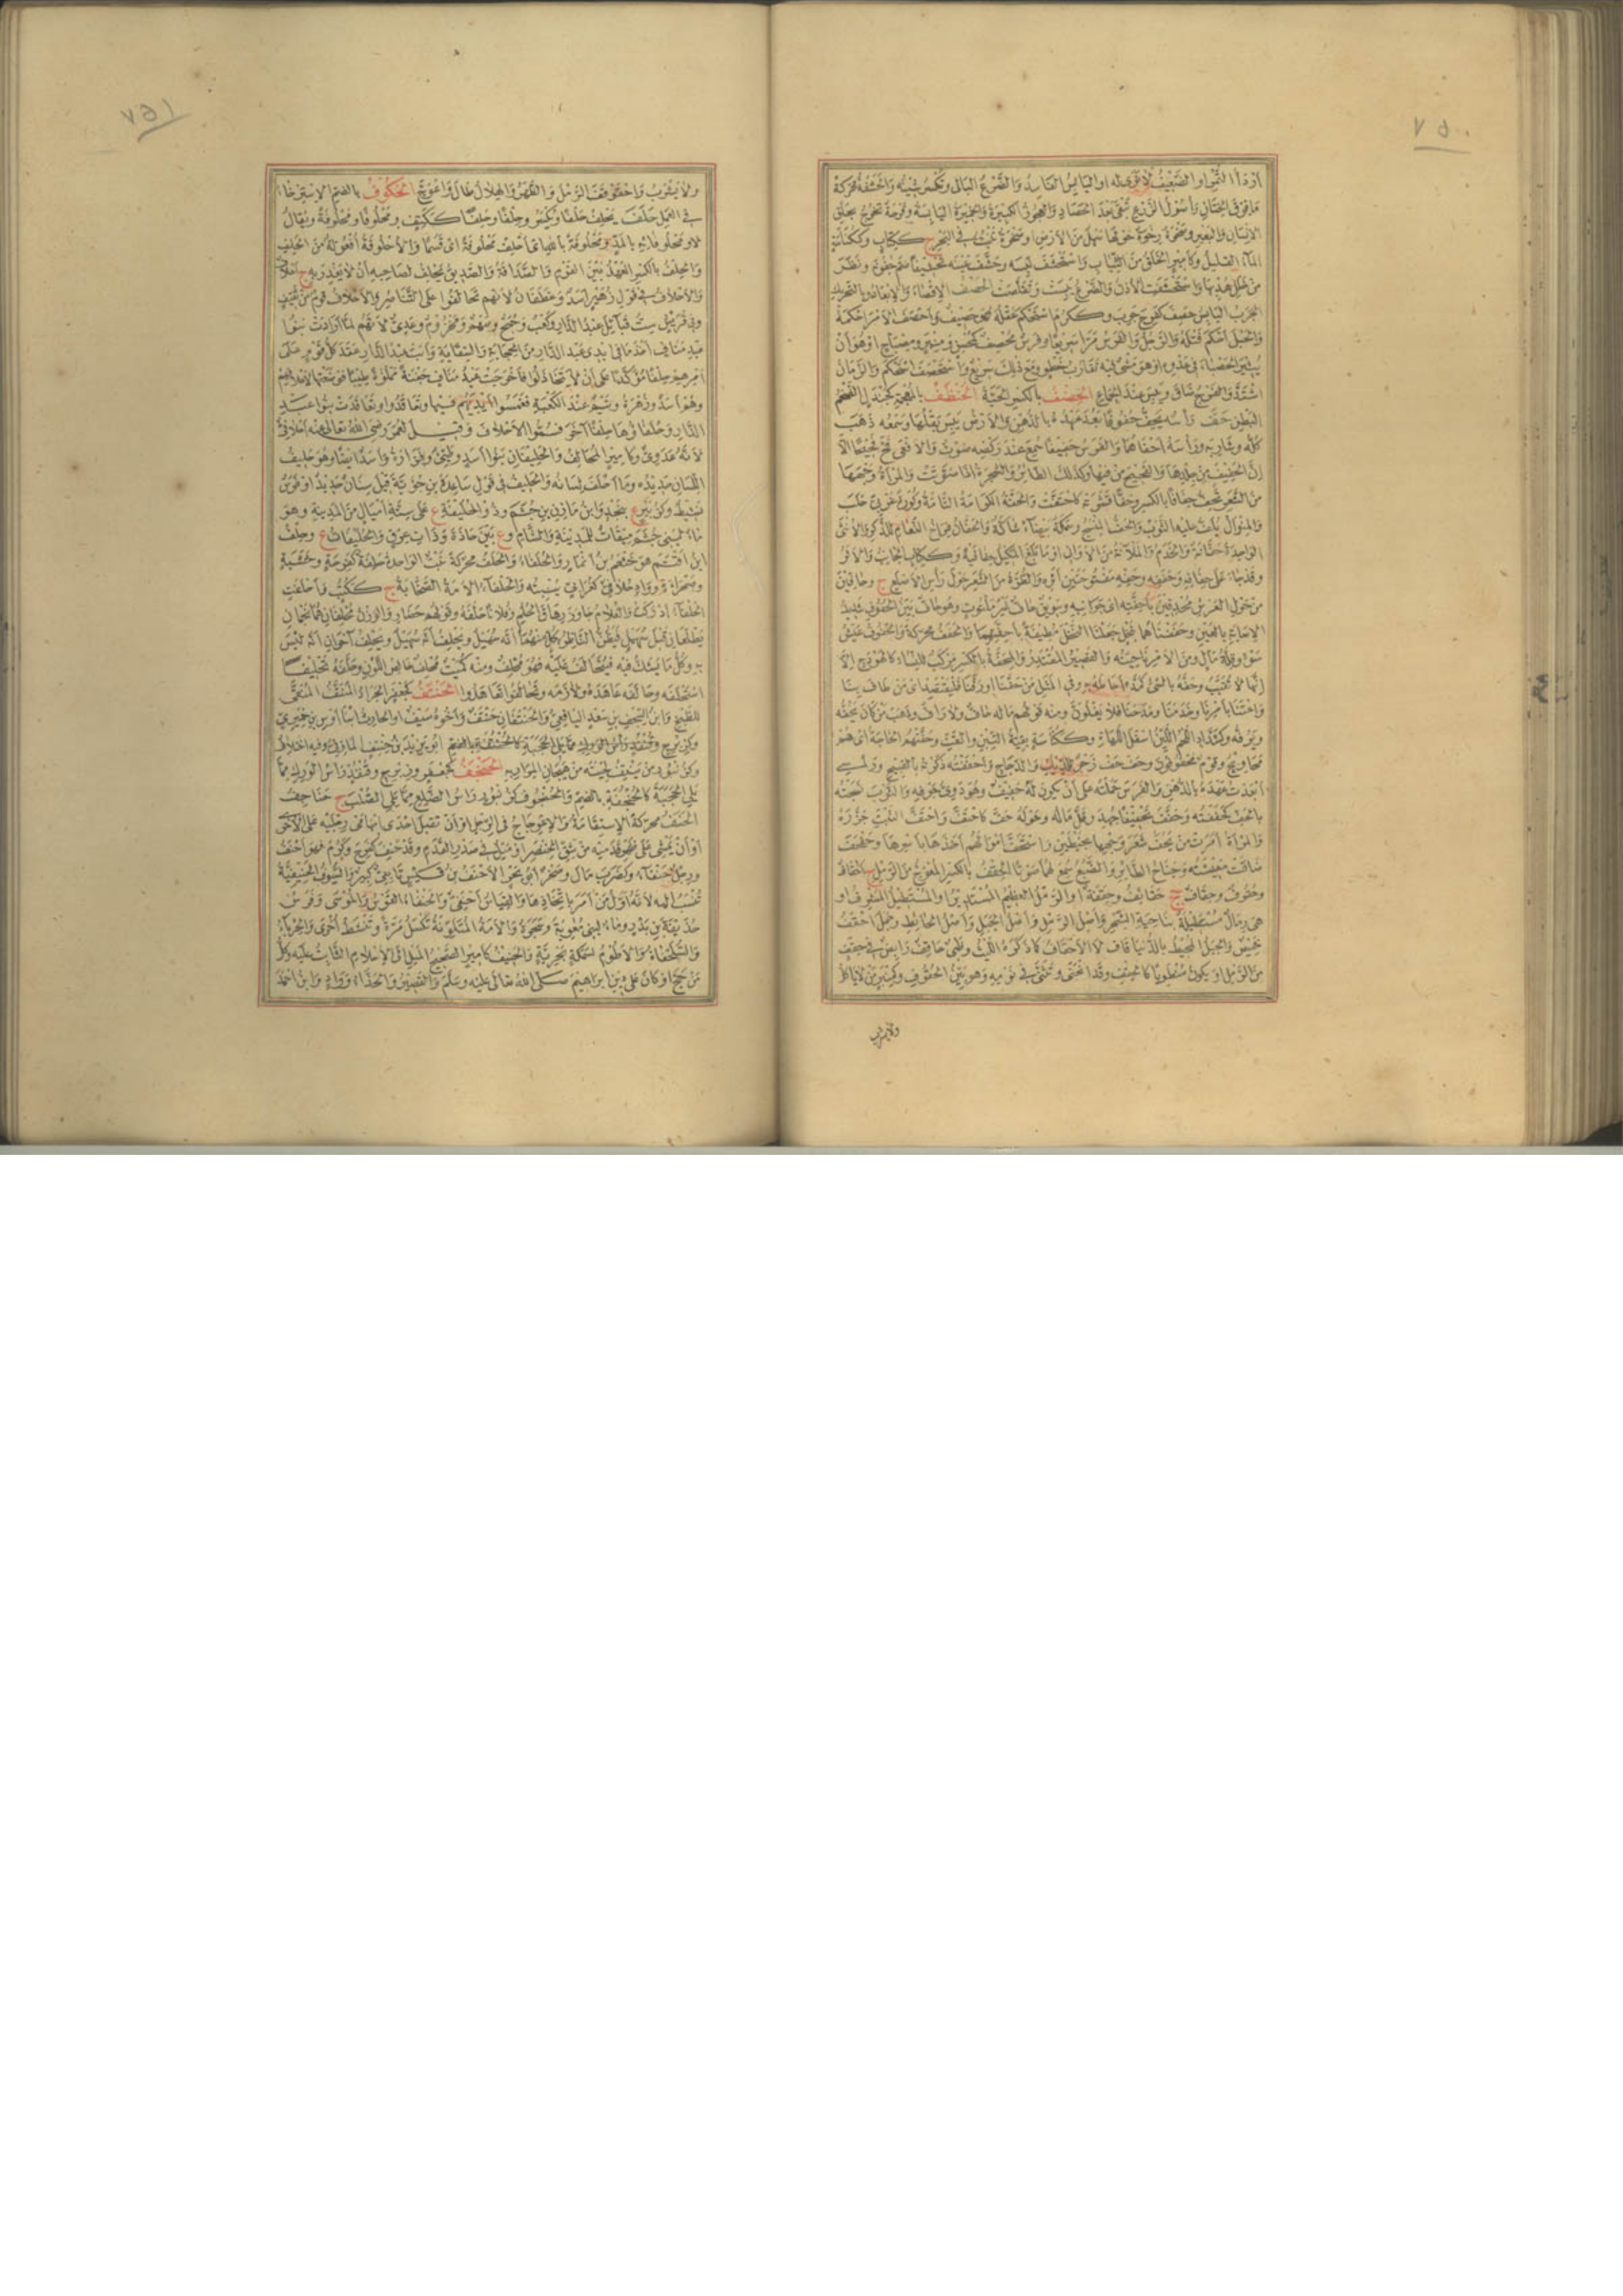 ٧٥٠
أردأ التمر او الضعيف لا نوى له او اليابس الفاسد والضرع البالى ويكسر شينه والحشفة محركة
ما فوق الختان وأصول الزرع تبقى بعد الحصاد والعجوز الكبيرة والخميرة اليابسة وقرحة تخرج بحلق
الانسان والبعير وصخرة رخوة حولها سهل من الارض او صخرة تنبت فى البحر ج ككتاب وككناسة
الماء القليل وكامير الخلق من الثياب واستحشف لبسه وحشف عينه تحشيفا ضم جفونه ونظر
من خلل هدبها واستحشفت الاذن والضرع يبست وتقلصت الحصف الاقصاء والابعاد وبالتحريك
الجرب اليابس حصف كفرح جرب وككرم استحكم عقله فهو حصيف واحصف الامر احكمه
والحبل احكم فتله والرجل والفرس مرا سريعا وفرس محصف كمحسن ومنبر ومصباح او هو أن
يثير الحصباء فى عدوه او هو مشى فيه تقارب خطو ومع ذلك سريع واستحصف استحكم والزمان
اشتد والفرج ضاق ويبس عند الجماع الحضف بالكسر الحية الحنظف بالمعجمة كجندل الضخم
البطن حف رأسه يحف حفوفا بعد عهده بالدهن والارض يبس بقلها وسمعه ذهب
كله وشاربه ورأسه احفاهما والفرس حفيفا سمع عند ركضه صوت والافعى فح فحيحا الا
أن الحفيف من جلدها والفحيح من فيها وكذلك الطائر والشجرة اذا صوتت والمرأة وجهها
من الشعر تحف حفافا بالكسر وحفا قشرته كاحتفت والحفة الكرامة التامة وكورة غربى حلب
والمنوال يلف عليه الثوب والحف المنسج وسمكة بيضاء شاكة والحفان فراخ النعام للذكر والانثى
الواحدة حفانة والخدم والملآنة من الاوانى او ما بلغ المكيل حفافيه وككتاب الجانب والاثر
وقد جاء على حفافه وحففه وحفه مفتوحتين اثره والطرة من الشعر حول رأس الاصلع ج وحافين
من حول العرش محدقين باحفته اى جوانبه وسويق حاف غير ملتوت وهو حاف بين الحفوف شديد
الاصابة بالعين وحففناهما بنخل جعلنا النخل مطيفة باحفتهما والحفف محركة والحفوف عيش
سوء وقلة مال ومن الامر ناحيته والقصير المقتدر والمحفة بالكسر مركب للنساء كالهودج الا
أنها لا تقبب وحفه بالشىء كمده احاط به وفى المثل من حفنا او رفنا فليقتصد اى من طاف بنا
واعتنى بامرنا وخدمنا ومدحنا فلا يغلون ومنه قولهم ماله حاف ولا راف وذهب من كان يحفه
ويرفه وكشداد اللحم اللين اسفل اللهاة وككناسة بقية التبن والقت وحفتهم الحاجة اى هم
محاويج وقوم محفوفون وحف حف زجر للديك والدجاج واحففته ذكرته بالقبيح ورأسى
ابعدت عهده بالدهن والفرس حملته على أن يكون له حفيف وهو دوى جوفه والثوب نسجته
بالحف كحففته وحفف تحفيفا جهد وقل ماله وحوله حف كاحتف واحتف النبت جزه
والمرأة امرت من يحف شعر وجهها بخيطين واستحف اموالهم اخذها باسرها وحفحف
ضاقت معيشته وجناح الطائر والضبع سمع لهما صوتا الحقف بالكسر المعوج من الرمل ج احقاف
وحقوف وحقاف جج حقائف وحقفة او الرمل العظيم المستدير او المستطيل المشرف او
هى رمال مستطيلة بناحية الشحر وأصل الرمل وأصل الجبل وأصل الحائط وجمل احقف
خميص والجبل المحيط بالدنيا قاف لا الاحقاف كما ذكره الليث وظبى حاقف رابض فى حقف
من الرمل او يكون منطويا كالحقف وقد انحنى وتثنى فى نومه وهو بين الحقوف وكمنبر من لا ياكل
ولا يشرب
٧٥١
ولا يشرب واحقوقف الرمل والظهر والهلال طال واعوج الحكوف بالضم الاسترخاء
فى العمل حلف يحلف حلفا ويكسر وحلفا وحلفا ككتف ومحلوفا ومحلوفة ويقال
لا ومحلوفائه بالمد ومحلوفة بالله اى احلف محلوفة اى قسما والاحلوفة افعولة من الحلف
والحلف بالكسر العهد بين القوم والصداقة والصديق يحلف لصاحبه أن لا يغدر به ج احلاف
والاحلاف فى قول زهير اسد وغطفان لانهم تحالفوا على التناصر والاحلاف قوم من ثقيف
وفى قريش ست قبائل عبد الدار وكعب وجمح وسهم ومخزوم وعدى لانهم لما أرادت بنوا
عبد مناف اخذ ما فى ايدى عبد الدار من الحجابة والسقاية وأبت عبد الدار عقد كل قوم على
امرهم حلفا مؤكدا على أن لا يتخاذلوا فاخرجت عبد مناف جفنة مملوة طيبا فوضعتها لاحلافهم
وهم اسد وزهرة وتيم عند الكعبة فغمسوا ايديهم فيها وتعاقدوا وتعاقدت بنوا عبد
الدار وحلفاؤها حلفا آخر فسموا الاحلاف وقيل لعمر رضى الله تعالى عنه احلافى
لانه عدوى وكامير المحالف والحليفان بنوا اسد وطيئ وفزارة واسد ايضا وهو حليف
اللسان حديده وما احلف لسانه والحليف فى قول ساعدة بن جؤية قيل سنان حديد او فرس
نشيط وكزبير ع بنجد وابن مازن بن جشم وذو الحليفة ع على ستة أميال من المدينة وهو
ماء لبنى جشم ميقات للمدينة والشام وع بين حاذة وذات عرق والحليفات ع وحلف
ابن أقتم هو خثعم بن انمار والحلفاء والحلف محركة نبت الواحدة حلفة كفرحة وخشبة
وصحراة وواد حلافى كغرابى ينبته والحلفاء الامة الصخابة ج ككتب واحلفت
الحلفاء ادركت والغلام جاوز رهاق الحلم وفلانا حلفه وقولهم حضار والوزن محلفان هما نجمان
يطلعان قبل سهيل فيظن الناظر بكل منهما أنه سهيل ويحلف أنه سهيل ويحلف آخر انه ليس
به وكل ما يشك فيه فيتحالف عليه فهو محلف ومنه كميت محلف خالص اللون وحلفه تحليفا
استحلفه وحالفه عاهده ولازمه وتحالفوا تعاهدوا الحنتف كجعفر الجراد المنتف المنقى
للطبخ وابن السجف بن سعد اليافعى والحنتفان حنتف وأخوه سيف او الحارث ابنا أوس بن حميرى
وكزبرج وقنفذ رأس الورك مما يلى الحجبة كالحنتفة بالضم ابو يزيد بن حنتف المازنى وفيه اختلاف
وكزنبور من ينتف لحيته من هيجان المرار به الحنجف كجعفر وزبرج وقنفذ راس الورك مما
يلى الحجبة كالحنجفة بالضم والحنجوف كزنبور راس الضلع مما يلى الصلب ج حناجف
الحنف محركة الاستقامة والاعوجاج فى الرجل او أن تقبل احدى ابهامى رجليه على الاخرى
او أن يمشى على ظهر قدميه من شق الخنصر او ميل فى صدر القدم وقد حنف كفرح وكرم فهو احنف
ورجل حنفاء وكضرب مال وصخر ابو بحر الاحنف بن قيس تابعى كبير والسيوف الحنيفية
تنسب اليه لانه اول من امر باتخاذها والقياس أحنفى والحنفاء القوس والموسى وفرس
حذيفة بن بدر وماء لبنى معوية وشجرة والامة المتلونة تكسل مرة وتنشط أخرى والحرباء
والسلحفاة والاطوم لسمكة بحرية والحنيف كامير الصحيح الميل الى الاسلام الثابت عليه وكل
من حج او كان على دين ابراهيم صلى الله تعالى عليه وسلم والقصير والحذاء وواد وابن احمد